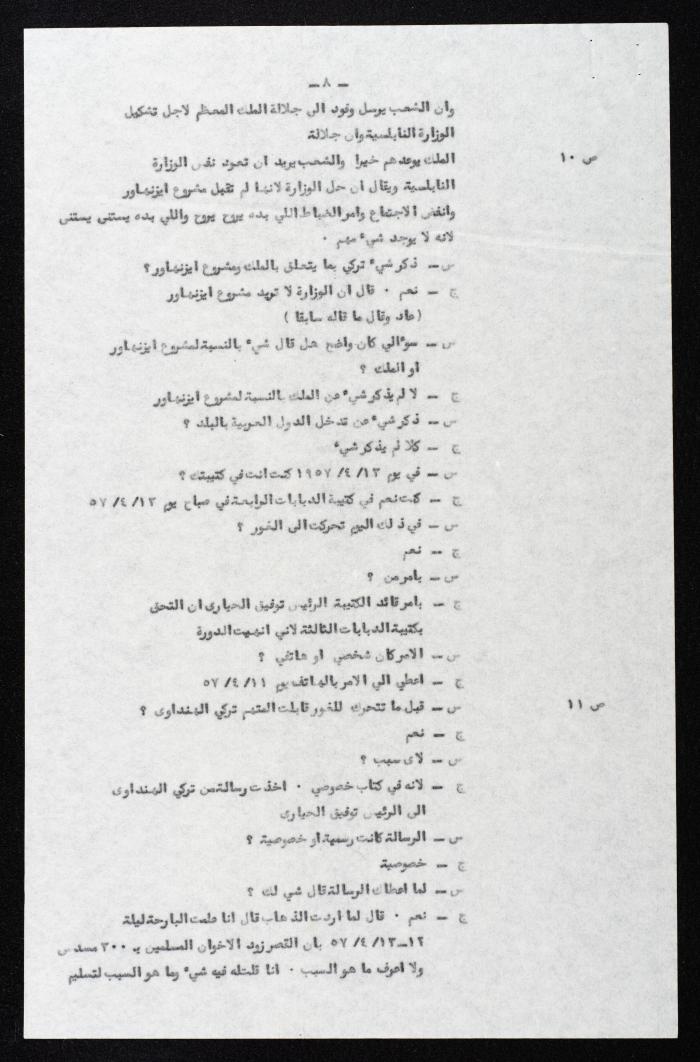 ــ ٨ ــ
وان الشعب يرسل وفود الى جلالة الملك المعظم لاجل تشكيل
الوزارة النابلسية وان جلالة
ص ١٠ الملك يوعدهم خيرا والشعب يريد ان تعود نفس الوزارة
النابلسية ويقال ان حل الوزارة لانها لم تقبل مشروع ايزنهاور
وانفض الاجتماع وامر الضباط اللي بده يروح يروح واللي بده يستنى يستنى
لانه لا يوجد شيء مهم ٠
س ــ ذكر شيء تركي بما يتعلق بالملك ومشروع ايزنهاور ؟
ج ــ نعم ٠ قال ان الوزارة لا تريد مشروع ايزنهاور
(عاد وقال ما قاله سابقا )
س ــ سؤالي كان واضح هل قال شيء بالنسبة لمشروع ايزنهاور
او الملك ؟
ج ــ لا لم يذكر شيء عن الملك بالنسبة لمشروع ايزنهاور
س ــ ذكر شيء عن تدخل الدول العربية بالبلد ؟
ج ــ كلا لم يذكر شيء
س ــ في يوم ١٣/ ٤/ ١٩٥٧ كنت انت في كتيبتك ؟
ج ــ كنت نعم في كتيبة الدبابات الرابعة في صباح يوم ١٣/ ٤/ ٥٧
س ــ في ذلك اليوم تحركت الى الغور ؟
ج ــ نعم
س ــ بامر من ؟
ج ــ بامر قائد الكتيبة الرئيس توفيق الحيارى ان التحق
بكتيبة الدبابات الثالثة لاني انهيت الدورة
س ــ الامر كان شخصي او هاتفي ؟
ج ــ اعطي الي الامر بالهاتف يوم ١١/ ٤/ ٥٧
ص ١١ س ــ قبل ما تتحرك للغور قابلت المتهم تركي الهنداوى ؟
ج ــ نعم
س ــ لاى سبب ؟
ج ــ لانه في كتاب خصوصي ٠ اخذت رسالة من تركي الهنداوى
الى الرئيس توفيق الحيارى
س ــ الرسالة كانت رسمية او خصوصية ؟
ج ــ خصوصية
س ــ لما اعطاك الرسالة قال شي لك ؟
ج ــ نعم ٠ قال لما اردت الذهاب قال انا علمت البارحة ليلة
١٢ــ١٣/ ٤/ ٥٧ بان القصر زود الاخوان المسلمين بـ ٣٠٠ مسدس
ولا اعرف ما هو السبب ٠ انا قلتله فيه شيء وما هو السبب لتسليم